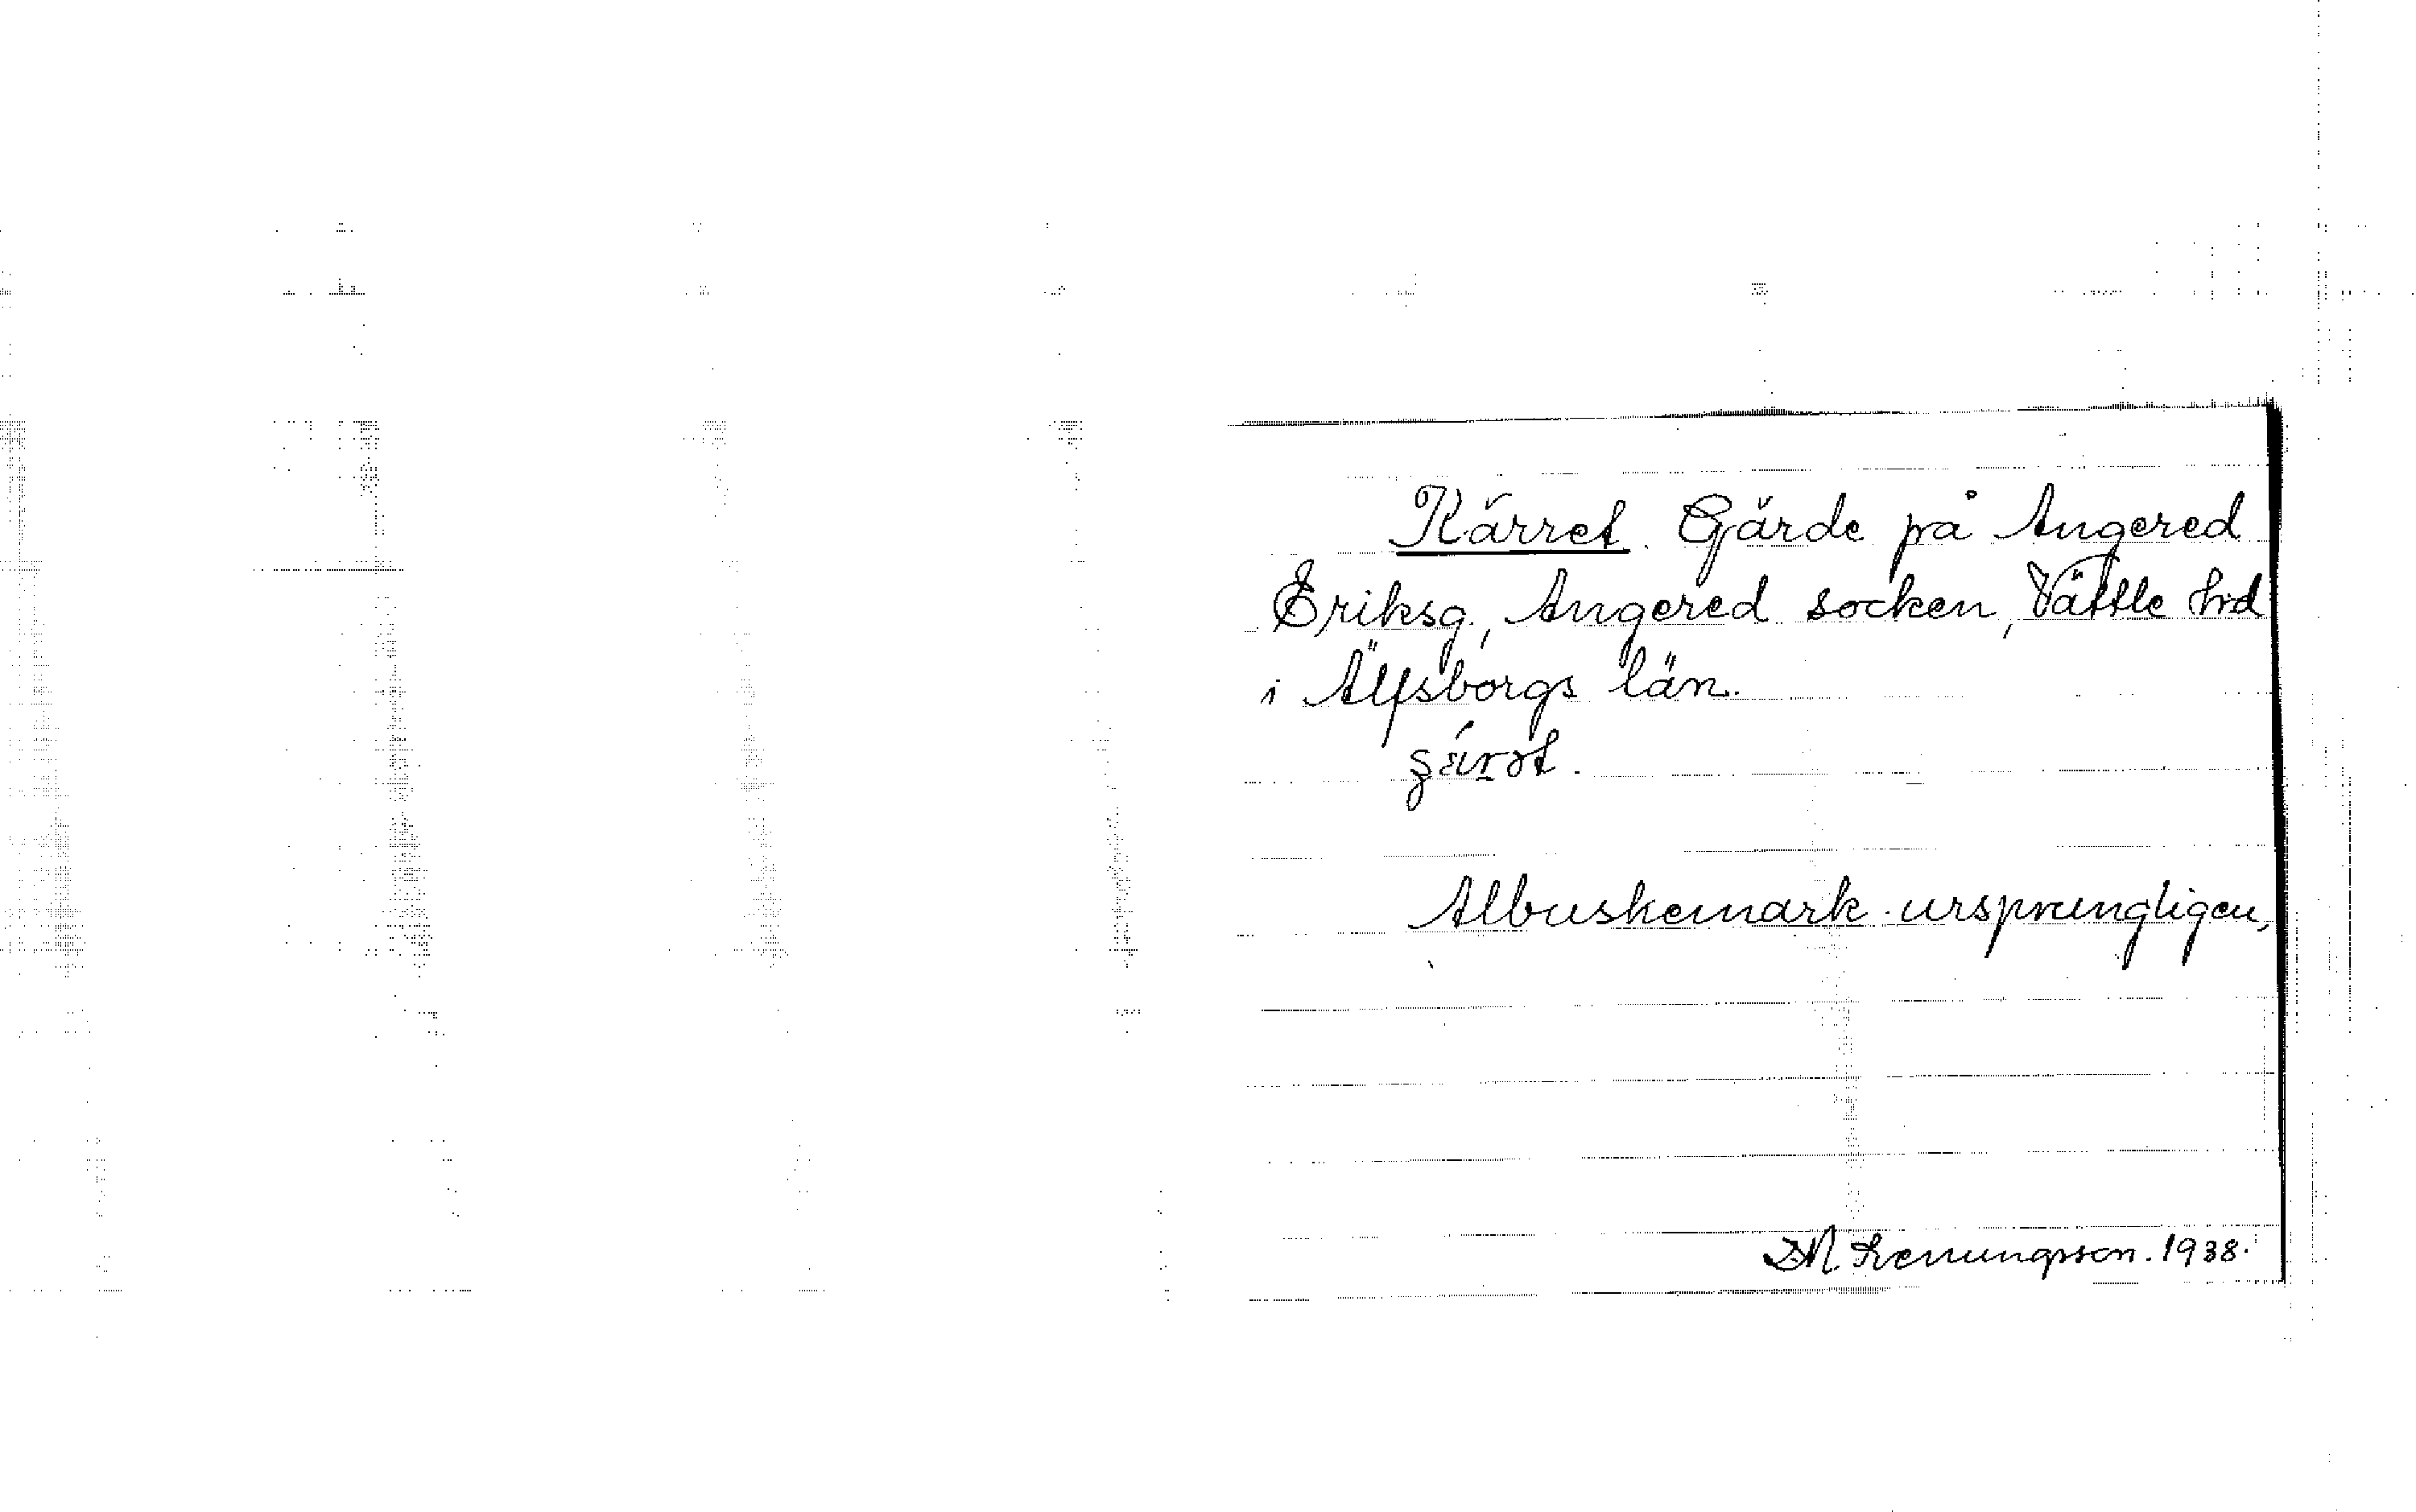 Kärret. Gärde på Angered
Eriksg., Angered socken, Vättle hrd
i Älfsborgs län.
Albuskemark ursprungligen,
1938.